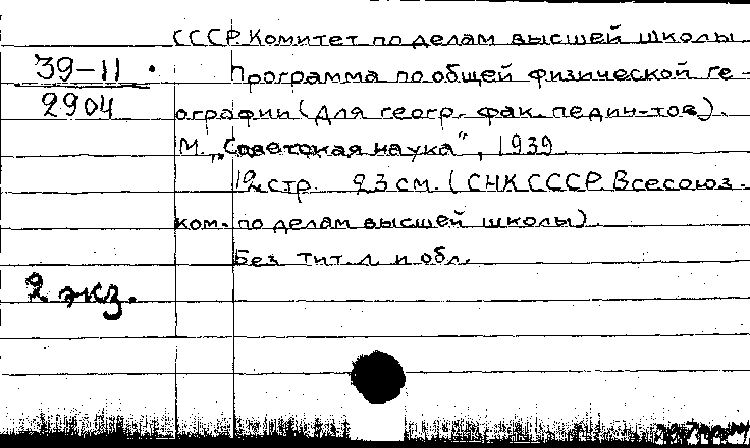 СССР. Комитет по делам высшей школы
39-11
2904
Программа по общей физической ге-
ографии (для геогр. фак. педин-тов).
М., „Советская наука“, 1939.
12 стр. 23 см. (СНК СССР. Всесоюз.
ком. по делам высшей школы).
Без тит. л. и обл.
2 экз.